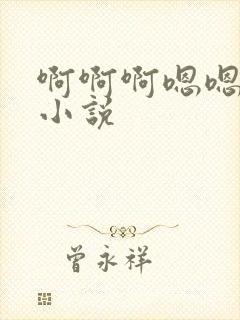 啊啊啊嗯嗯
小说
曾永祥